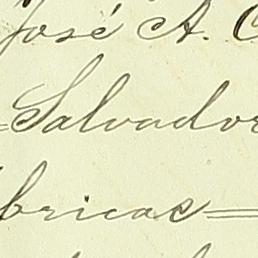 José A. C
Salvador
bricas=